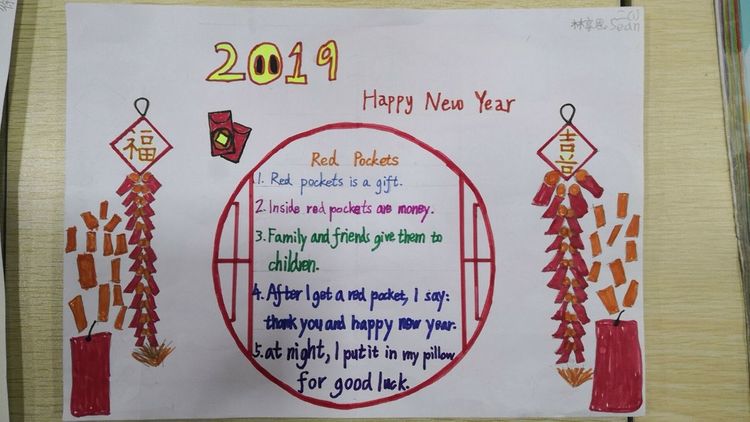 二(1)
林享恩 Sean
2019
Happy New Year
福
喜
Red Pockets
1. Red pockets is a gift.
2. Inside red pockets are money.
3. Family and friends give them to
children.
4. After I get a red pocket, I say:
thank you and happy new year.
5. at night, I put it in my pillow
for good luck.